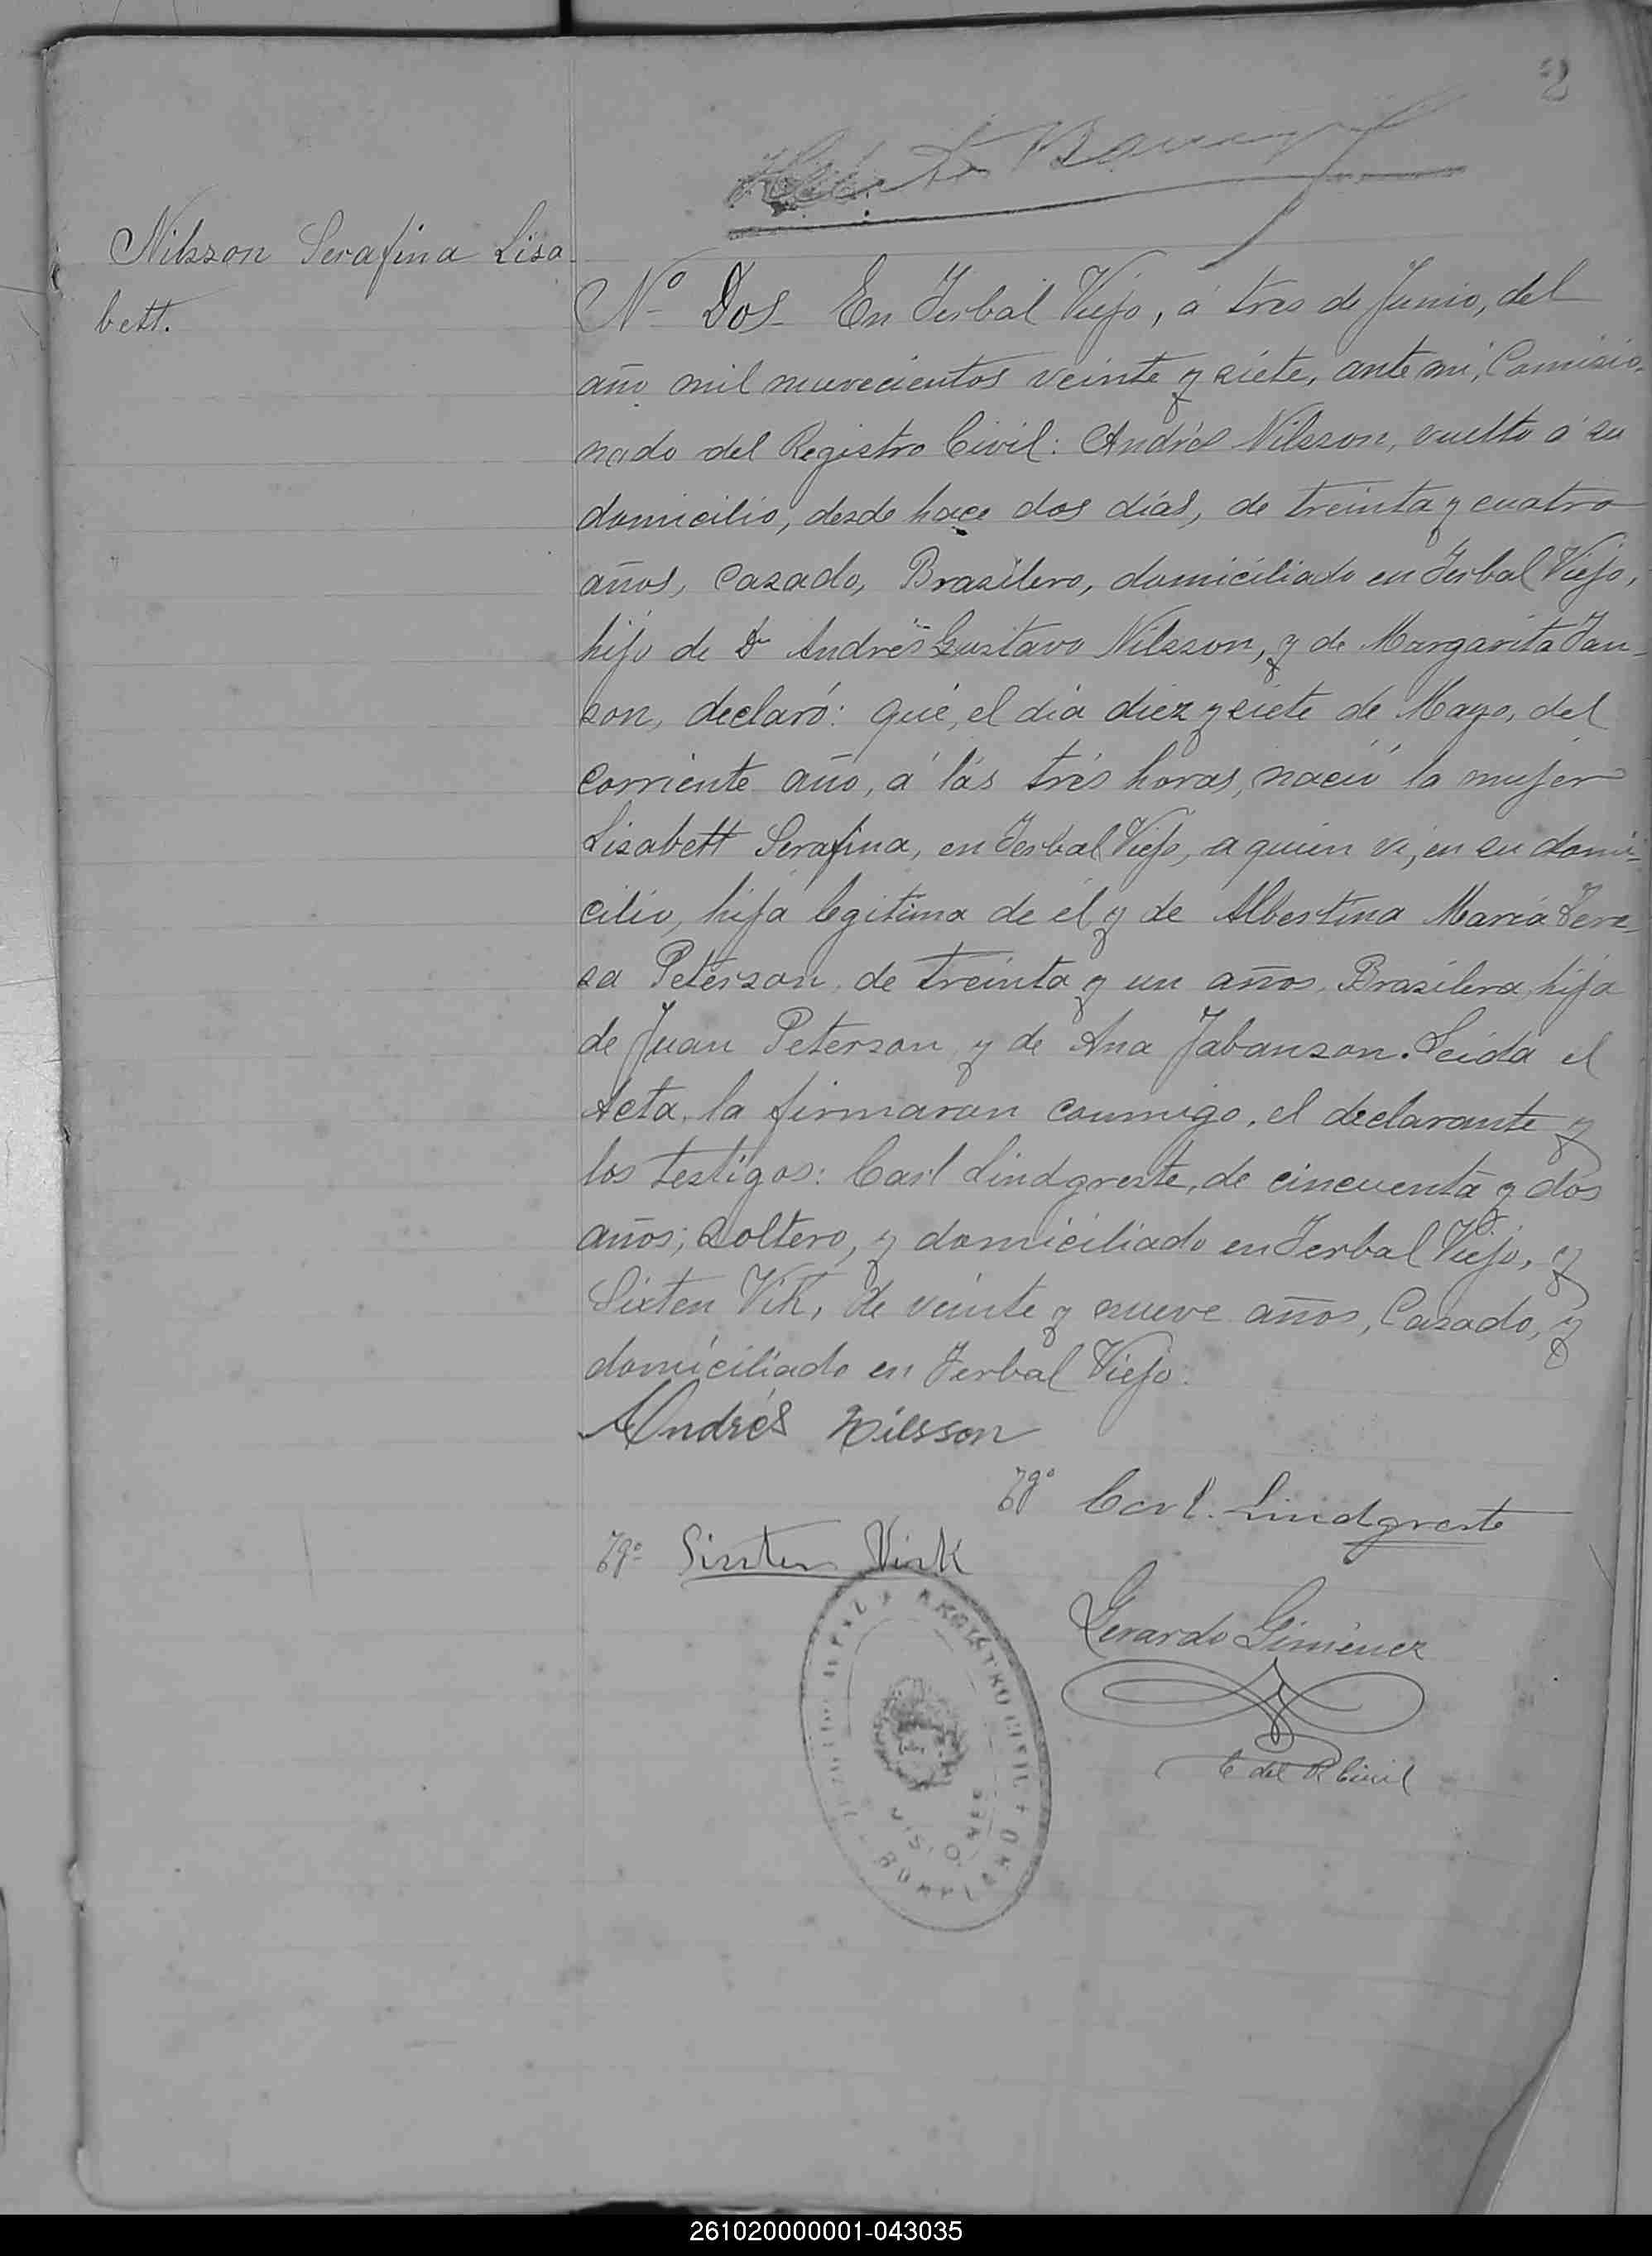 2
Nilsson Serafina Lisa-
bett.
Nº Dos- En Yerbal Viejo, á tres de Junio, del
año mil nuevecientos veinte y siete, ante mi, Comisio-
nado del Registro Civil: Andrés Nilsson, vuelto á su
domicilio, desde hace dos días, de treinta y cuatro
años, Casado, Brasilero, domiciliado en Yerbal Viejo,
hijo de Dn Andrés Gustavo Nilsson, y de Margarita Jan-
son, declaró: que, el día diez y siete de Mayo, del
corriente año, á las tres horas, nació la mujer
Lisabett Serafina, en Yerbal Viejo, a quien vi, en su domi-
cilio, hija legitima de él y de Albertina María Tere-
sa Peterson, de treinta y un años, Brasilera, hija
de Juan Peterson y de Ana Jabanson. Leida el
Acta, la firmaron conmigo, el declarante y
los testigos: Carl Lindgreste, de cincuenta y dos
años, Soltero, y domiciliado en Yerbal Viejo, y
Sixten Vik, de veinte y nueve años, Casado, y
domiciliado en Yerbal Viejo.
Andrés Nilsson
Tgº Carl. Lindgreste
Tgº Sixten Vik
Gerardo Giménez
C del R Civil
REGISTRO CIVIL
261020000001-043035